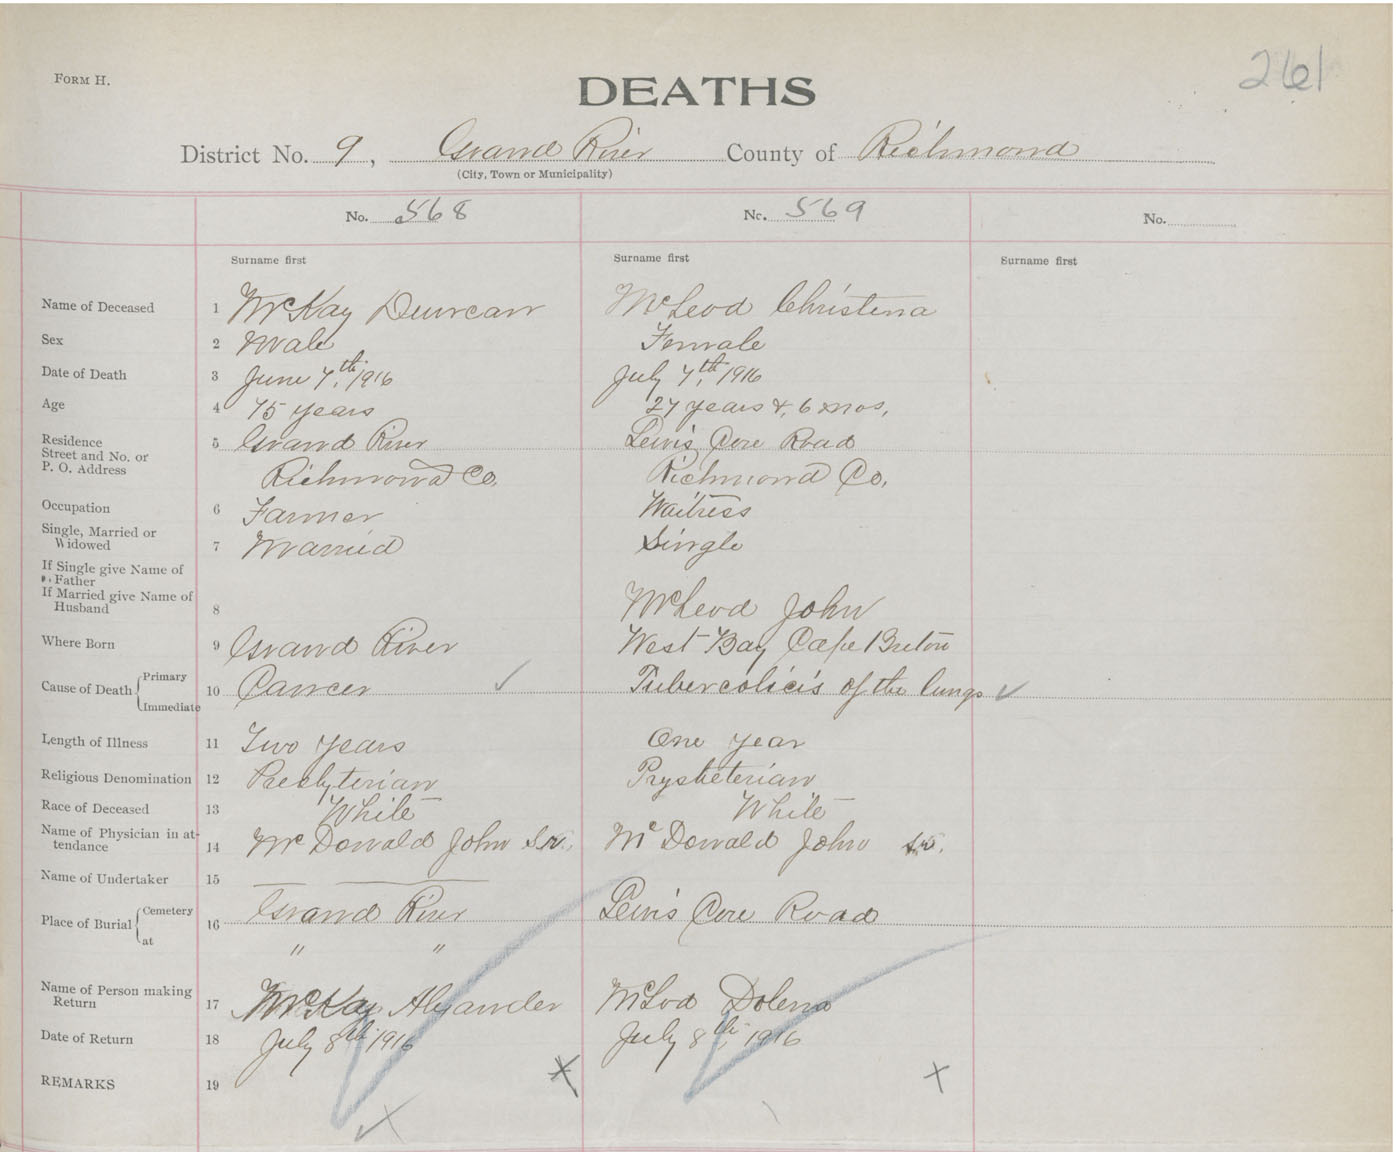 261
FORM H.
DEATHS
District No. 9, Grand River County of Richmond
(City, Town or Municipality)
No. 568 No. 569 No.
Surname first Surname first Surname first
Name of Deceased 1 McKay Duncan McLeod Christena
Sex 2 Male Female
Date of Death 3 June 7th, 1916 July 7th, 1916
Age 4 75 years 27 years & 6 mos.
Residence 5 Grand River Lewis Cove Road
Street and No. or
P. O. Address Richmond Co. Richmond Co.
Occupation 6 Farmer Waitress
Single, Married or
Widowed 7 Married Single
If Single give Name of
Father
If Married give Name of
Husband 8 McLeod John
Where Born 9 Grand River West Bay Cape Breton
Cause of Death { Primary
10 Cancer ✓ Tubercolicis of the lungs ✓
Immediate
Length of Illness 11 Two years One year
Religious Denomination 12 Presbyterian Prysbeterian
Race of Deceased 13 White White
Name of Physician in at-
tendance 14 McDonald John Sr. McDonald John Sr.
Name of Undertaker 15
Place of Burial { Cemetery
16 Grand River Lewis Cove Road
at " "
Name of Person making
Return 17 McKay Alexander McLod Dolena
Date of Return 18 July 8th 1916 July 8th, 1916
REMARKS 19 X X